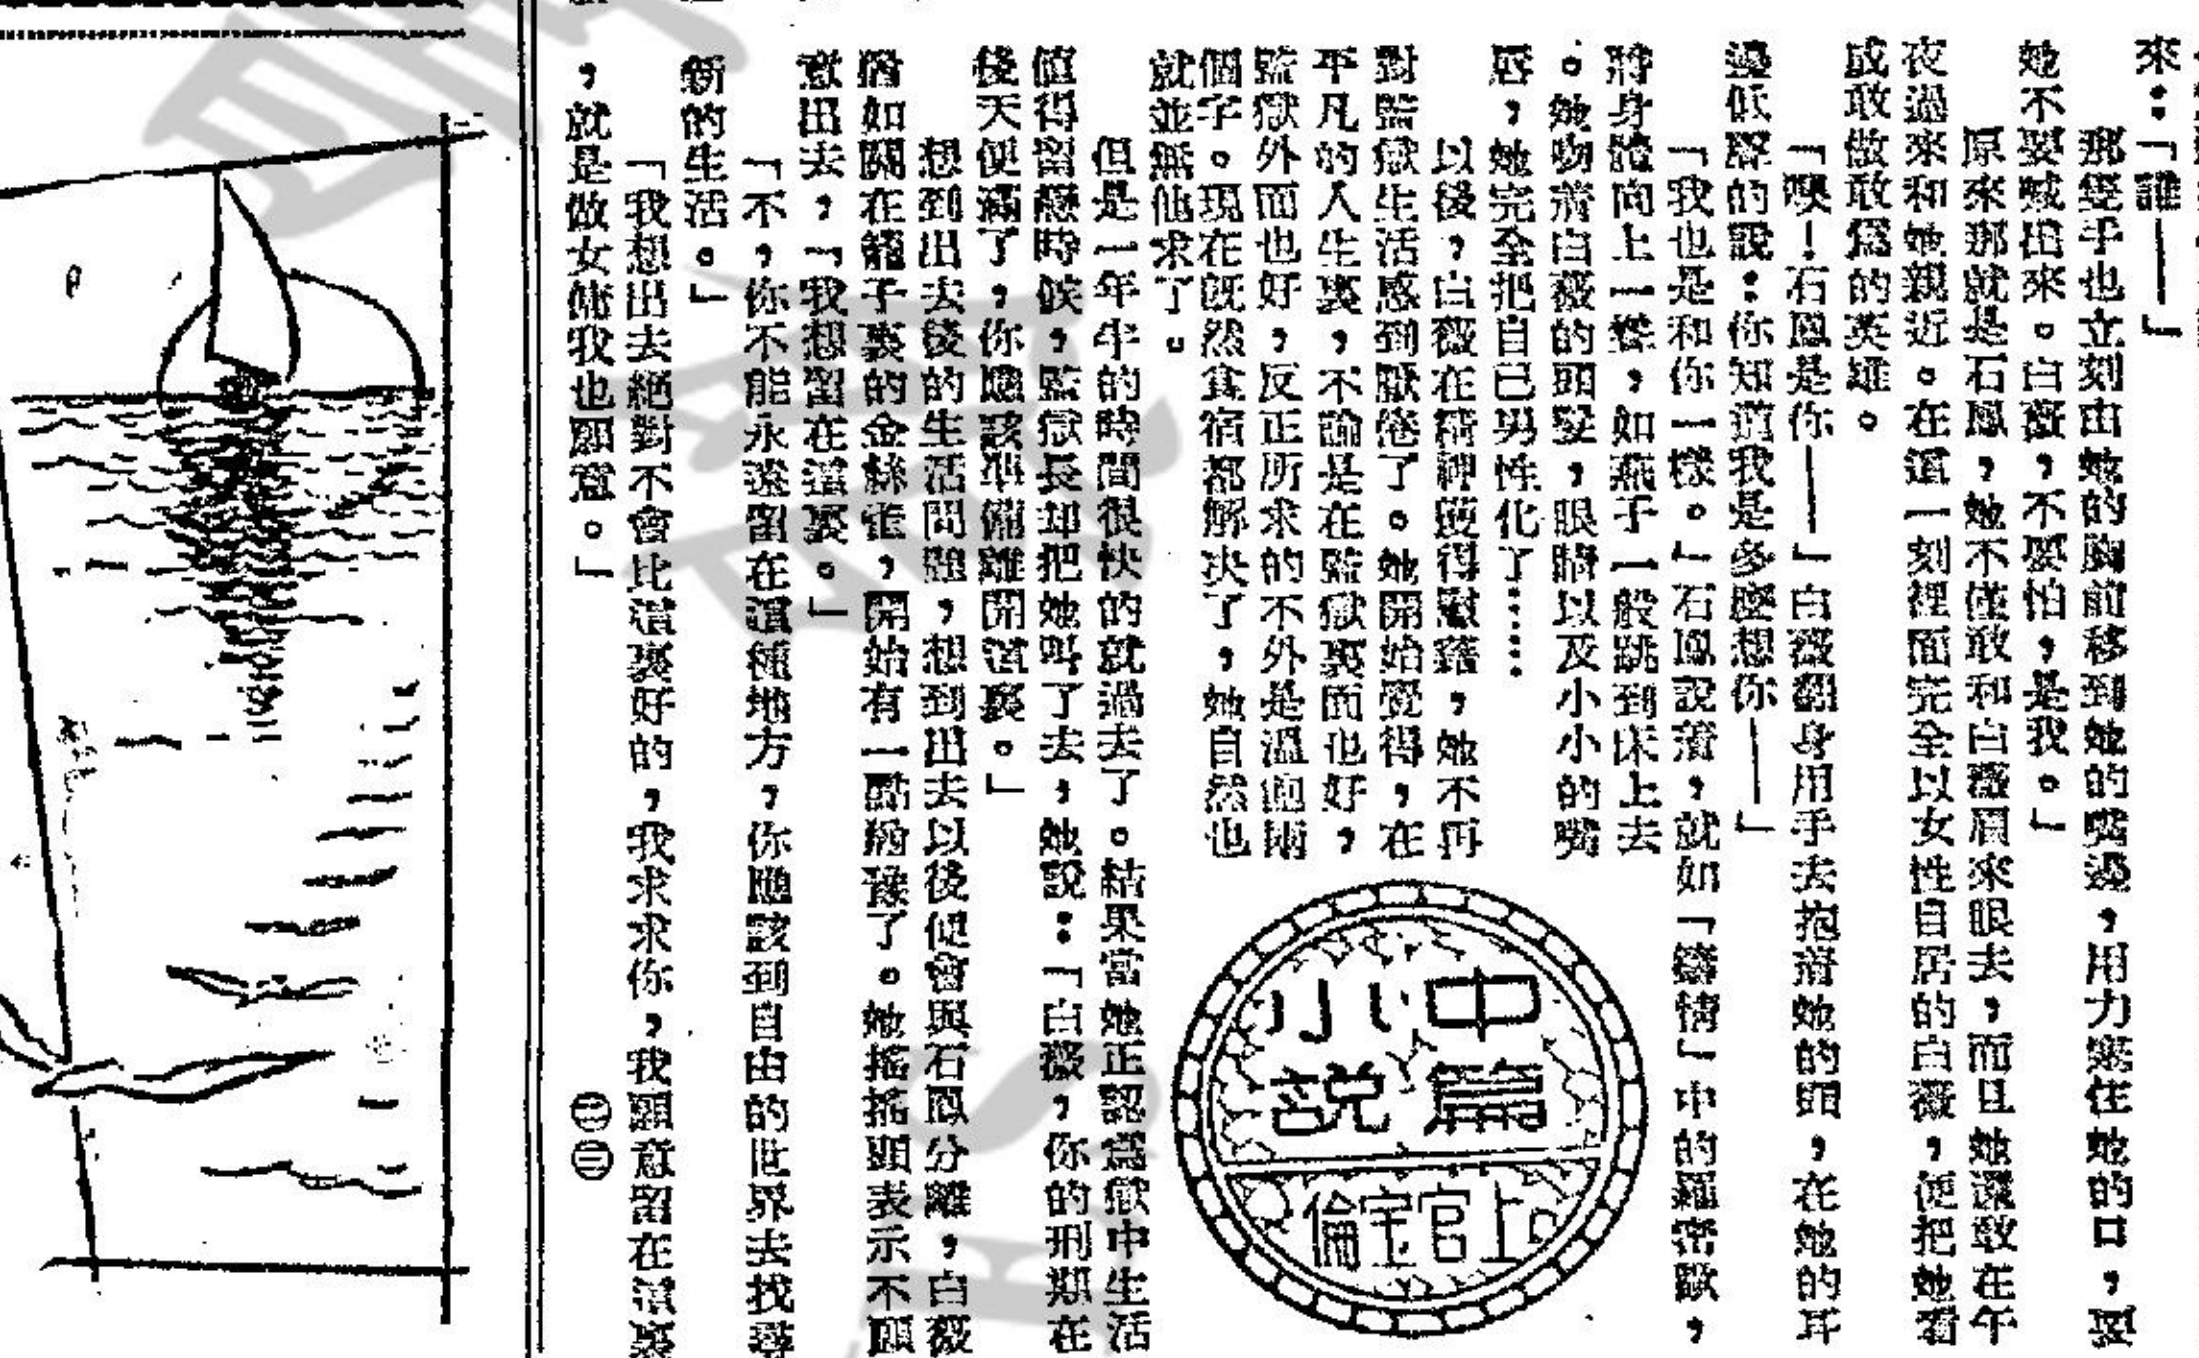 來：「誰——」
那隻手也立刻由她的胸前移到她的嘴邊，用力塞住她的口，要
她不要喊出來。白薇，不要怕，是我。」
原來那就是石鳳，她不僅敢和白薇眉來眼去，而且她還敢在午
夜過來和她親近。在這一刻裡面完全以女性自居的白薇，便把她看
成敢做敢爲的英雄。
「噢！石鳳是你——」白薇翻身用手去抱着她的頭，在她的耳
邊低聲的說：你知道我是多麼想你——」
「我也是和你一樣。」石鳳說着，就如「鑄情」中的羅密歐，
將身體向上一聳，如燕子一般跳到床上去
。她吻着白薇的頭髮，眼睛以及小小的嘴
唇，她完全把自己男性化了……
以後，白薇在精神獲得慰藉，她不再
對監獄生活感到厭倦了。她開始覺得，在
平凡的人生裏，不論是在監獄裏面也好，
監獄外面也好，反正所求的不外是溫飽兩
個字。現在既然食宿都解決了，她自然也
就並無他求了。
但是一年半的時間很快的就過去了。結果當她正認爲獄中生活
值得留戀時候，監獄長却把她叫了去，她說：「白薇，你的刑期在
後天便滿了，你應該準備離開這裏。」
想到出去後的生活問題，想到出去以後便會與石鳳分離，白薇
猶如關在籠子裏的金絲雀，開始有一點猶豫了。她搖搖頭表示不願
意出去，「我想留在這裏。」
「不，你不能永遠留在這種地方，你應該到自由的世界去找尋
新的生活。」
「我想出去絕對不會比這裏好的，我求求你，我願意留在這裏
，就是做女傭我也願意。」
㊁㊂
中篇
小説
上官宝倫